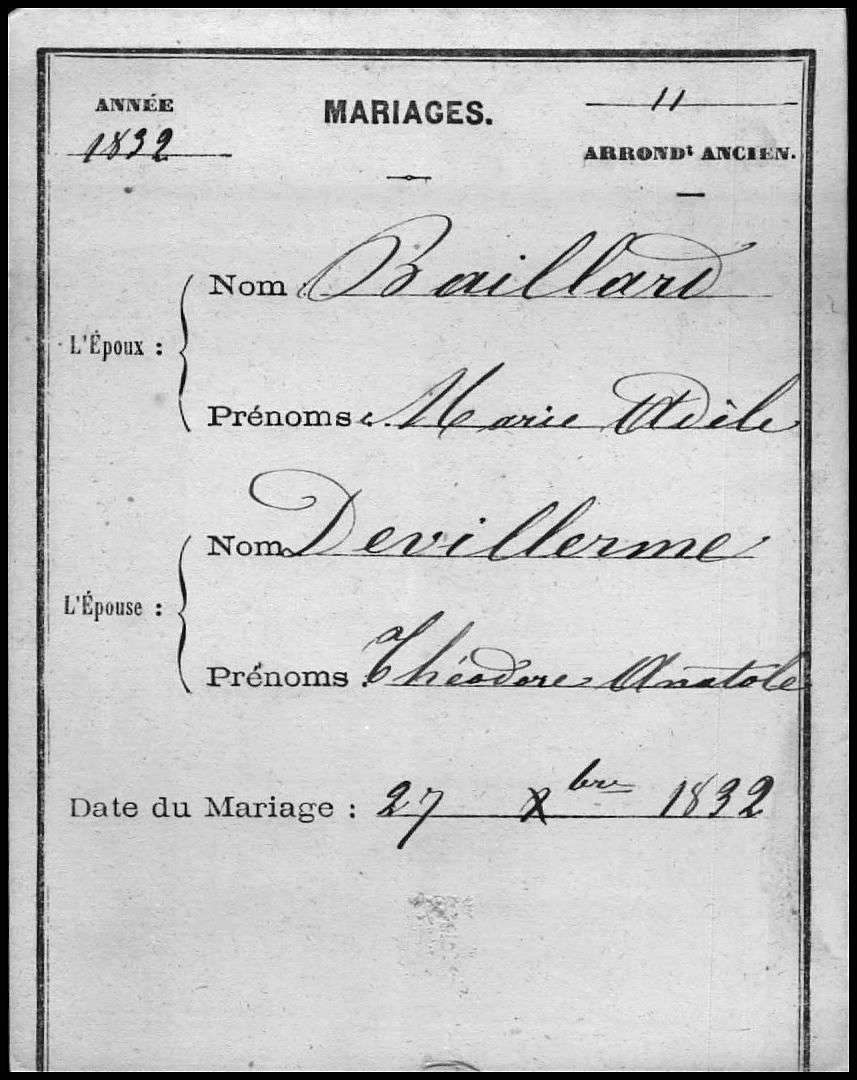 ANNÉE
1832
MARIAGES.
11
ARRONDt ANCIEN.
L'Époux :
Nom : Baillard
Prénoms : Marie Adèle
L'Épouse :
Nom Devillerme
Prénoms : Théodore Anatole
Date du Mariage : 27 Xbre 1832